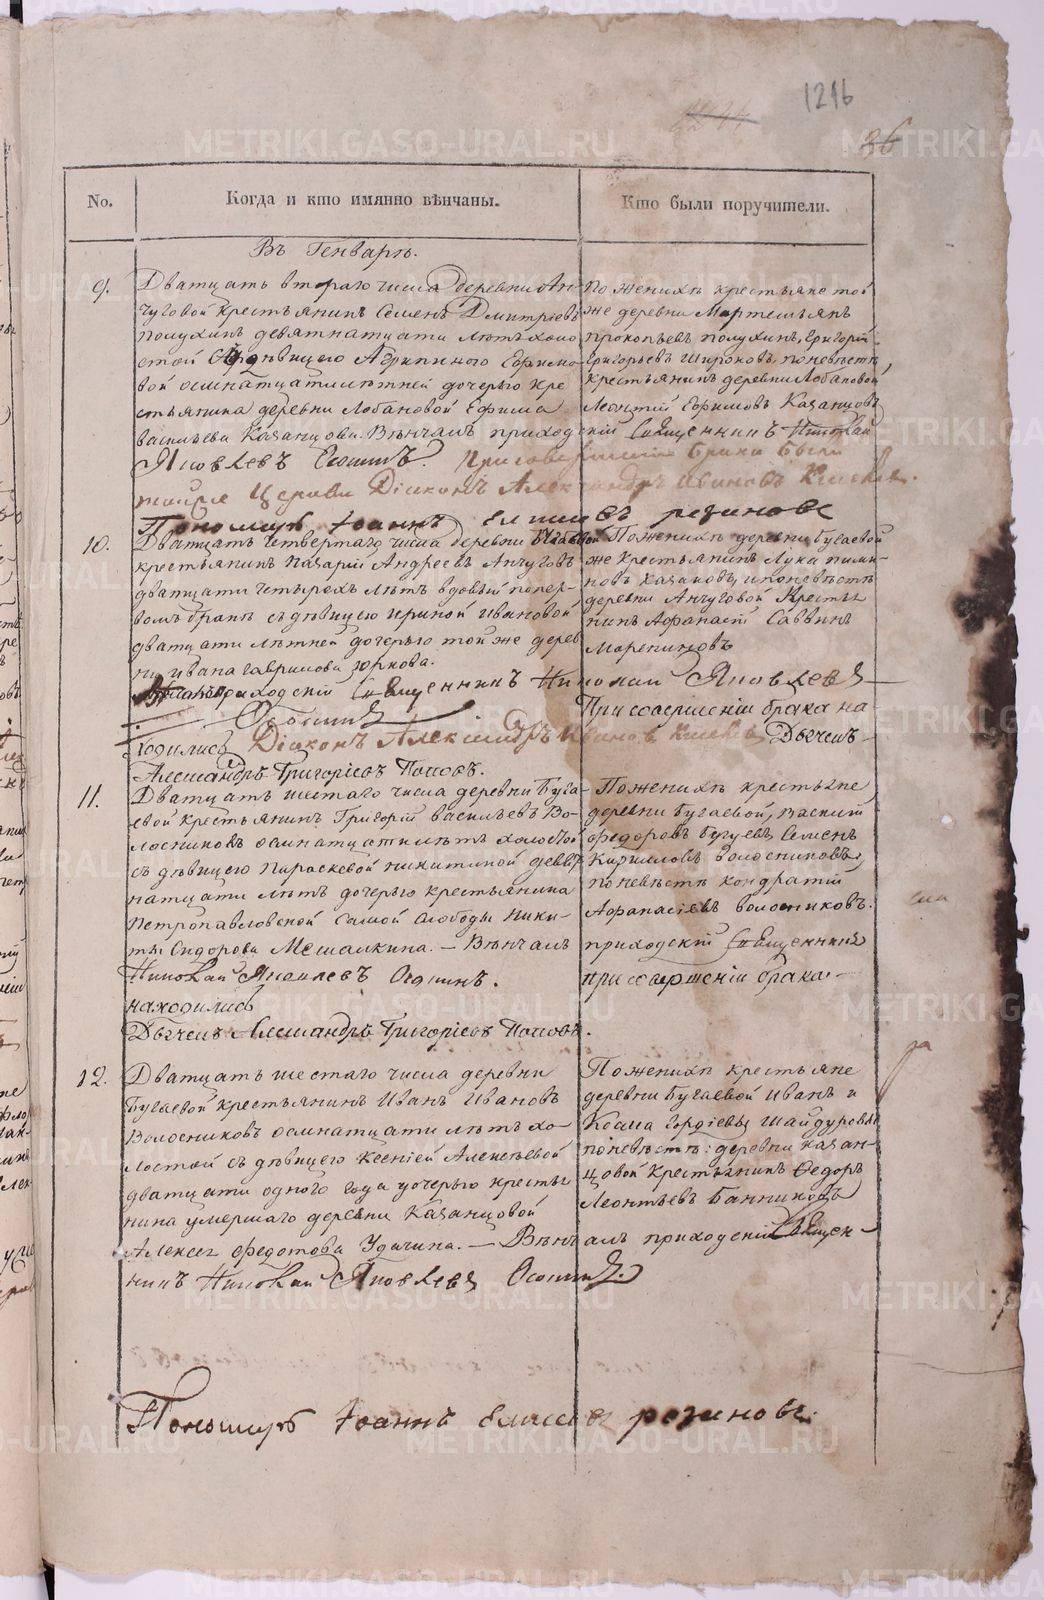 1216
36
No.
Когда и кто имянно вѣнчаны.
Кто были поручители.
Въ Генварѣ.
9.
Дватцать втораго числа деревни Ан-
чуговой крестьянинъ Семенъ Дмитріевъ
полухинъ девятнатцати лѣтъ холо
стой съ дѣвицею Агрипиною Ефимо
вой осмнатцатилѣтней дочерью кре
стьянина деревни Лобановой Ефима
васильева Казанцова. Вѣнчалъ приходскій Священникъ Николай
Яковлевъ
При совершеніи брака были
тойже Церкви Діаконъ Александръ Ивановъ
Пономарь Іоаннъ Елисеевъ резановъ
По женихѣ крестьяне той
же деревни Мартемьянъ
прокопьевъ полухинъ, Григорій
григорьевъ Широковъ, по невѣстѣ
крестьянинъ деревни Лобановой
Леонтій Ефимовъ Казанцовъ
10.
Дватцать четвертаго числа деревни Бугаевой
крестьянинъ Назарій Андреевъ Анчуговъ
дватцати четырехъ лѣтъ вдовый попер-
вомъ бракѣ съ дѣвицею ириной Ивановой
дватцати лѣтней дочерью той же дерев
ни ивана гаврилова зоркова.
приходскій Священникъ Николай Яковлевъ
При совершеніи брака на
ходились Діаконъ Александръ Ивановъ Дьячекъ
Александръ Григорьевъ Поповъ.
По женихѣ деревни бугаевой
же Крестьянинъ Лука пиме-
новъ казаковъ, и по невѣстѣ
деревни Анчуговой Кресть
нинъ Афанасій Саввинъ
11.
Дватцать шестаго числа деревни Буга-
евой крестьянинъ Григорій васильевъ Во-
лосниковъ осмнатцати лѣтъ холостой
съ дѣвицею параскевой никитиной девят
натцати лѣтъ дочерью крестьянина
Петропавловской самой слободы Ники-
ты Сидорова Мешалкина. — Вѣнчалъ
Николай Яковлевъ
находились
Дьячекъ Александръ Григорьевъ Поповъ.
По женихѣ крестьяне
деревни Бугаевой, Василій
федоровъ бугуевъ, Семенъ
Кириловъ волосниковъ,
по невѣстѣ кондратій
Афанасіевъ волосниковъ.
приходскій Священникъ
при совершеніи брака
12.
Дватцать шестаго числа деревни
Бугаевой крестьянинъ Иванъ Ивановъ
Волосниковъ осмнатцати лѣтъ хо-
лостой съ дѣвицею Ксеніей Алексѣевой
дватцати одного года дочерью кресть
нина умершаго деревни Казанцовой
Алексея федотова Удачина. — Вѣнчалъ приходскій Священ-
никъ Николай Яковлевъ
По женихѣ крестьяне
деревни Бугаевой Иванъ и
Косма Гордіевы шайдуровы
по невѣстѣ: деревни казан-
цовой Крестьянинъ Федоръ
Леонтьевъ Банниковъ
Пономарь Іоаннъ Елисеевъ резановъ
METRIKI.GASO-URAL.RU